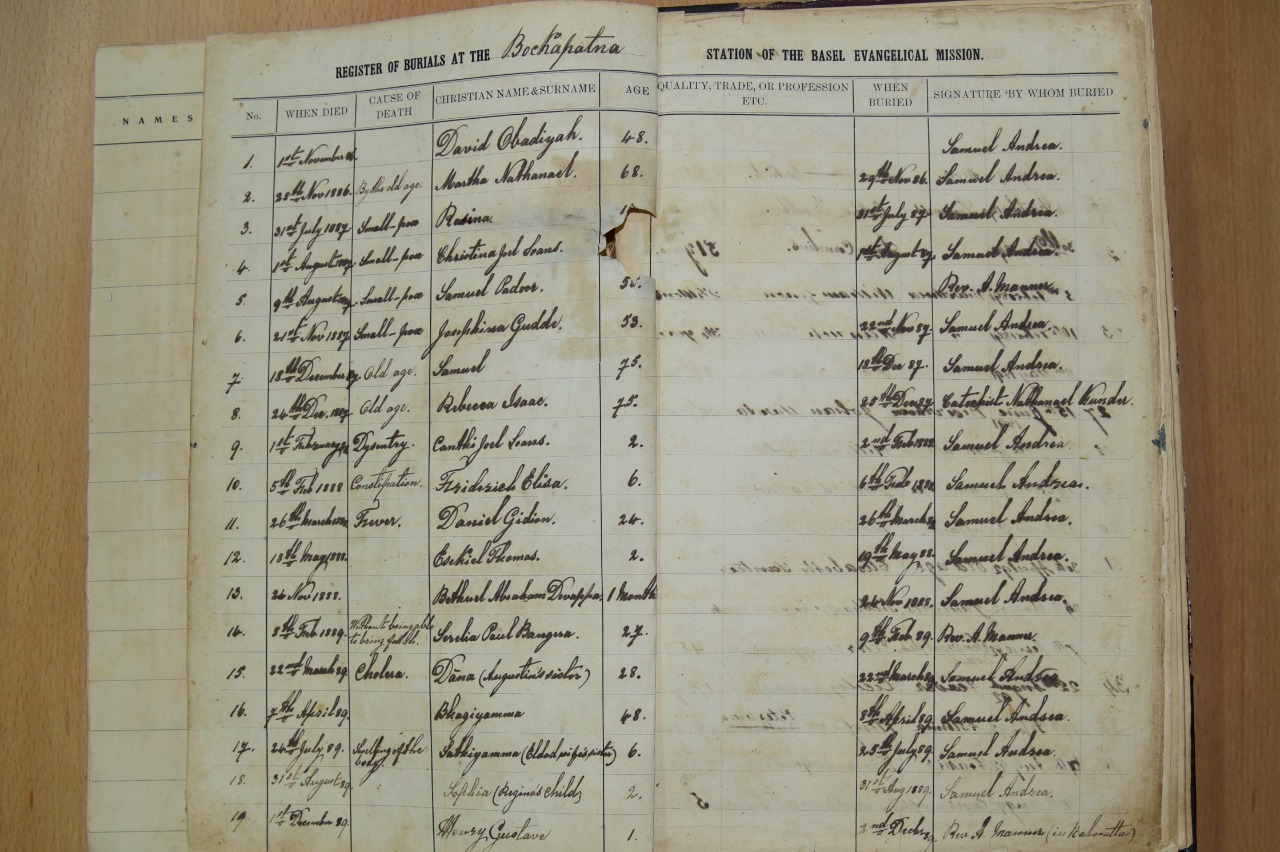 NAMES
REGISTER OF BURIALS AT THE Bockapatna STATION OF THE BASEL EVANGELICAL MISSION.
No. WHEN DIED CAUSE OF DEATH CHRISTIAN NAME & SURNAME AGE QUALITY, TRADE, OR PROFESSION ETC. WHEN BURIED SIGNATURE BY WHOM BURIED
1. 1st November 86. David Obadiyah. 48. Samuel Andrea.
2. 28th Nov 1886. By the old age. Martha Nathanael. 68. 29th Nov 86. Samuel Andrea.
3. 31st July 1887. Small-pox Rosina. 31st July 87. Samuel Andrea.
4. 1st August 1887. Small-pox Christina Joel Soans. 1st August 87. Samuel Andrea.
5. 9th August 1887. Small-pox Samuel Padoor. 55. Rev. A. Manner.
6. 21st Nov 1887 Small-pox Josephina Gudde. 53. 22nd Nov 87. Samuel Andrea.
7. 18th December 87. Old age. Samuel 75. 18th Dec 87. Samuel Andrea.
8. 24th Dec. 1887. Old age. Rebecca Isaac. 75. 25th Dec 87. Catechist Nathanael Kunder.
9. 1st February 88. Dysentry. Canthi Joel Soans. 2. 2nd Feb 1888. Samuel Andrea
10. 5th Feb 1888 Constipation. Friderich Elisa. 6. 6th Feb 1888. Samuel Andrea.
11. 26th March 1888 Frever. Daniel Gidion. 24. 26th March 88. Samuel Andrea.
12. 18th May 1888. Esekiel Thomas. 2. 19th May 88. Samuel Andrea.
13. 24 Nov 1888. Bethuel Abraham Devappa. 1 Month 24 Nov 1888. Samuel Andrea.
14. 8th Feb 1889. Without being able to bring forth. Serelia Paul Bangera. 27. 9th Feb 89. Rev. A. Manner.
15. 22nd March 89. Cholera. Dana (Augustin's sister) 28. 22nd March 89. Samuel Andrea
16. 7th April 89. Bhagiyamma 48. 8th April 89. Samuel Andrea.
17. 24th July 89. Swelling of the body. Sathiyamma (Eldad wife's sister) 6. 25th July 89. Samuel Andrea.
18. 31st August 89. Sophia (Regina's child) 2. 31st Aug 1889. Samuel Andrea.
19. 1st December 89. Henry Gustave 1. 2nd Decbr 89. Rev A. Manner (in